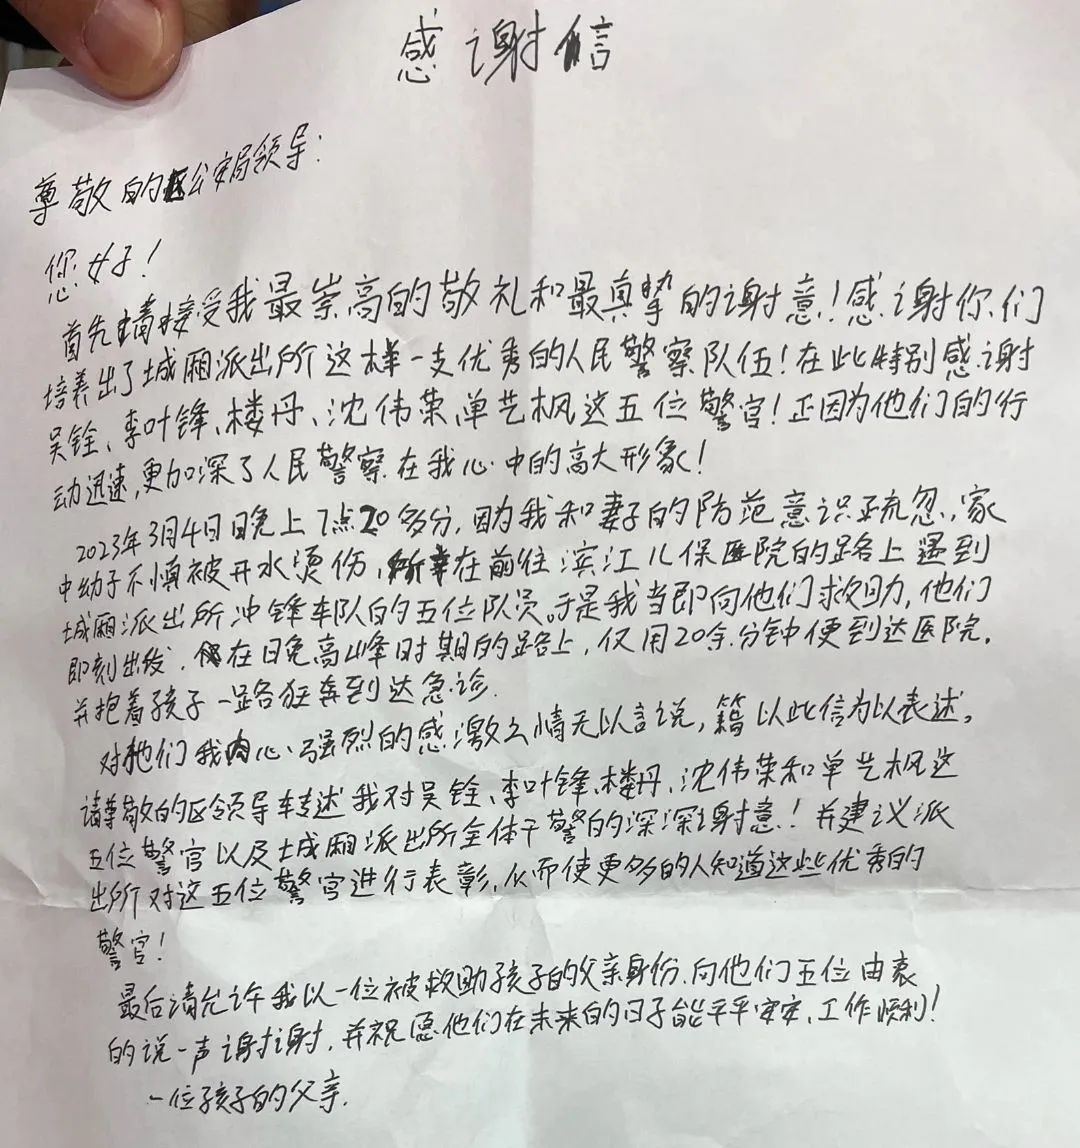 感谢信
尊敬的区公安局领导：
您好！
首先请接受我最崇高的敬礼和最真挚的谢意！感谢你们
培养出了城厢派出所这样一支优秀的人民警察队伍！在此特别感谢
吴铨、李叶锋、楼丹、沈伟荣、单艺枫这五位警官！正因为他们的行
动迅速，更加深了人民警察在我心中的高大形象！
2023年3月4日晚上7点20多分，因为我和妻子的防范意识疏忽，家
中幼子不慎被开水烫伤，所幸在前往滨江儿保医院的路上遇到
城厢派出所冲锋车队的五位队员。于是我当即向他们求助，他们
即刻出发，在日晚高峰时期的路上，仅用20余分钟便到达医院，
并抱着孩子一路狂奔到达急诊。
对他们我内心强烈的感激之情无以言说，籍以此信为以表述。
请尊敬的区领导转述我对吴铨、李叶锋、楼丹、沈伟荣和单艺枫这
五位警官以及城厢派出所全体干警的深深谢意！并建议派
出所对这五位警官进行表彰，从而使更多的人知道这些优秀的
警官！
最后请允许我以一位被救助孩子的父亲身份，向他们五位由衷
的说一声谢谢，并祝愿他们在未来的日子能平平安安，工作顺利！
一位孩子的父亲。